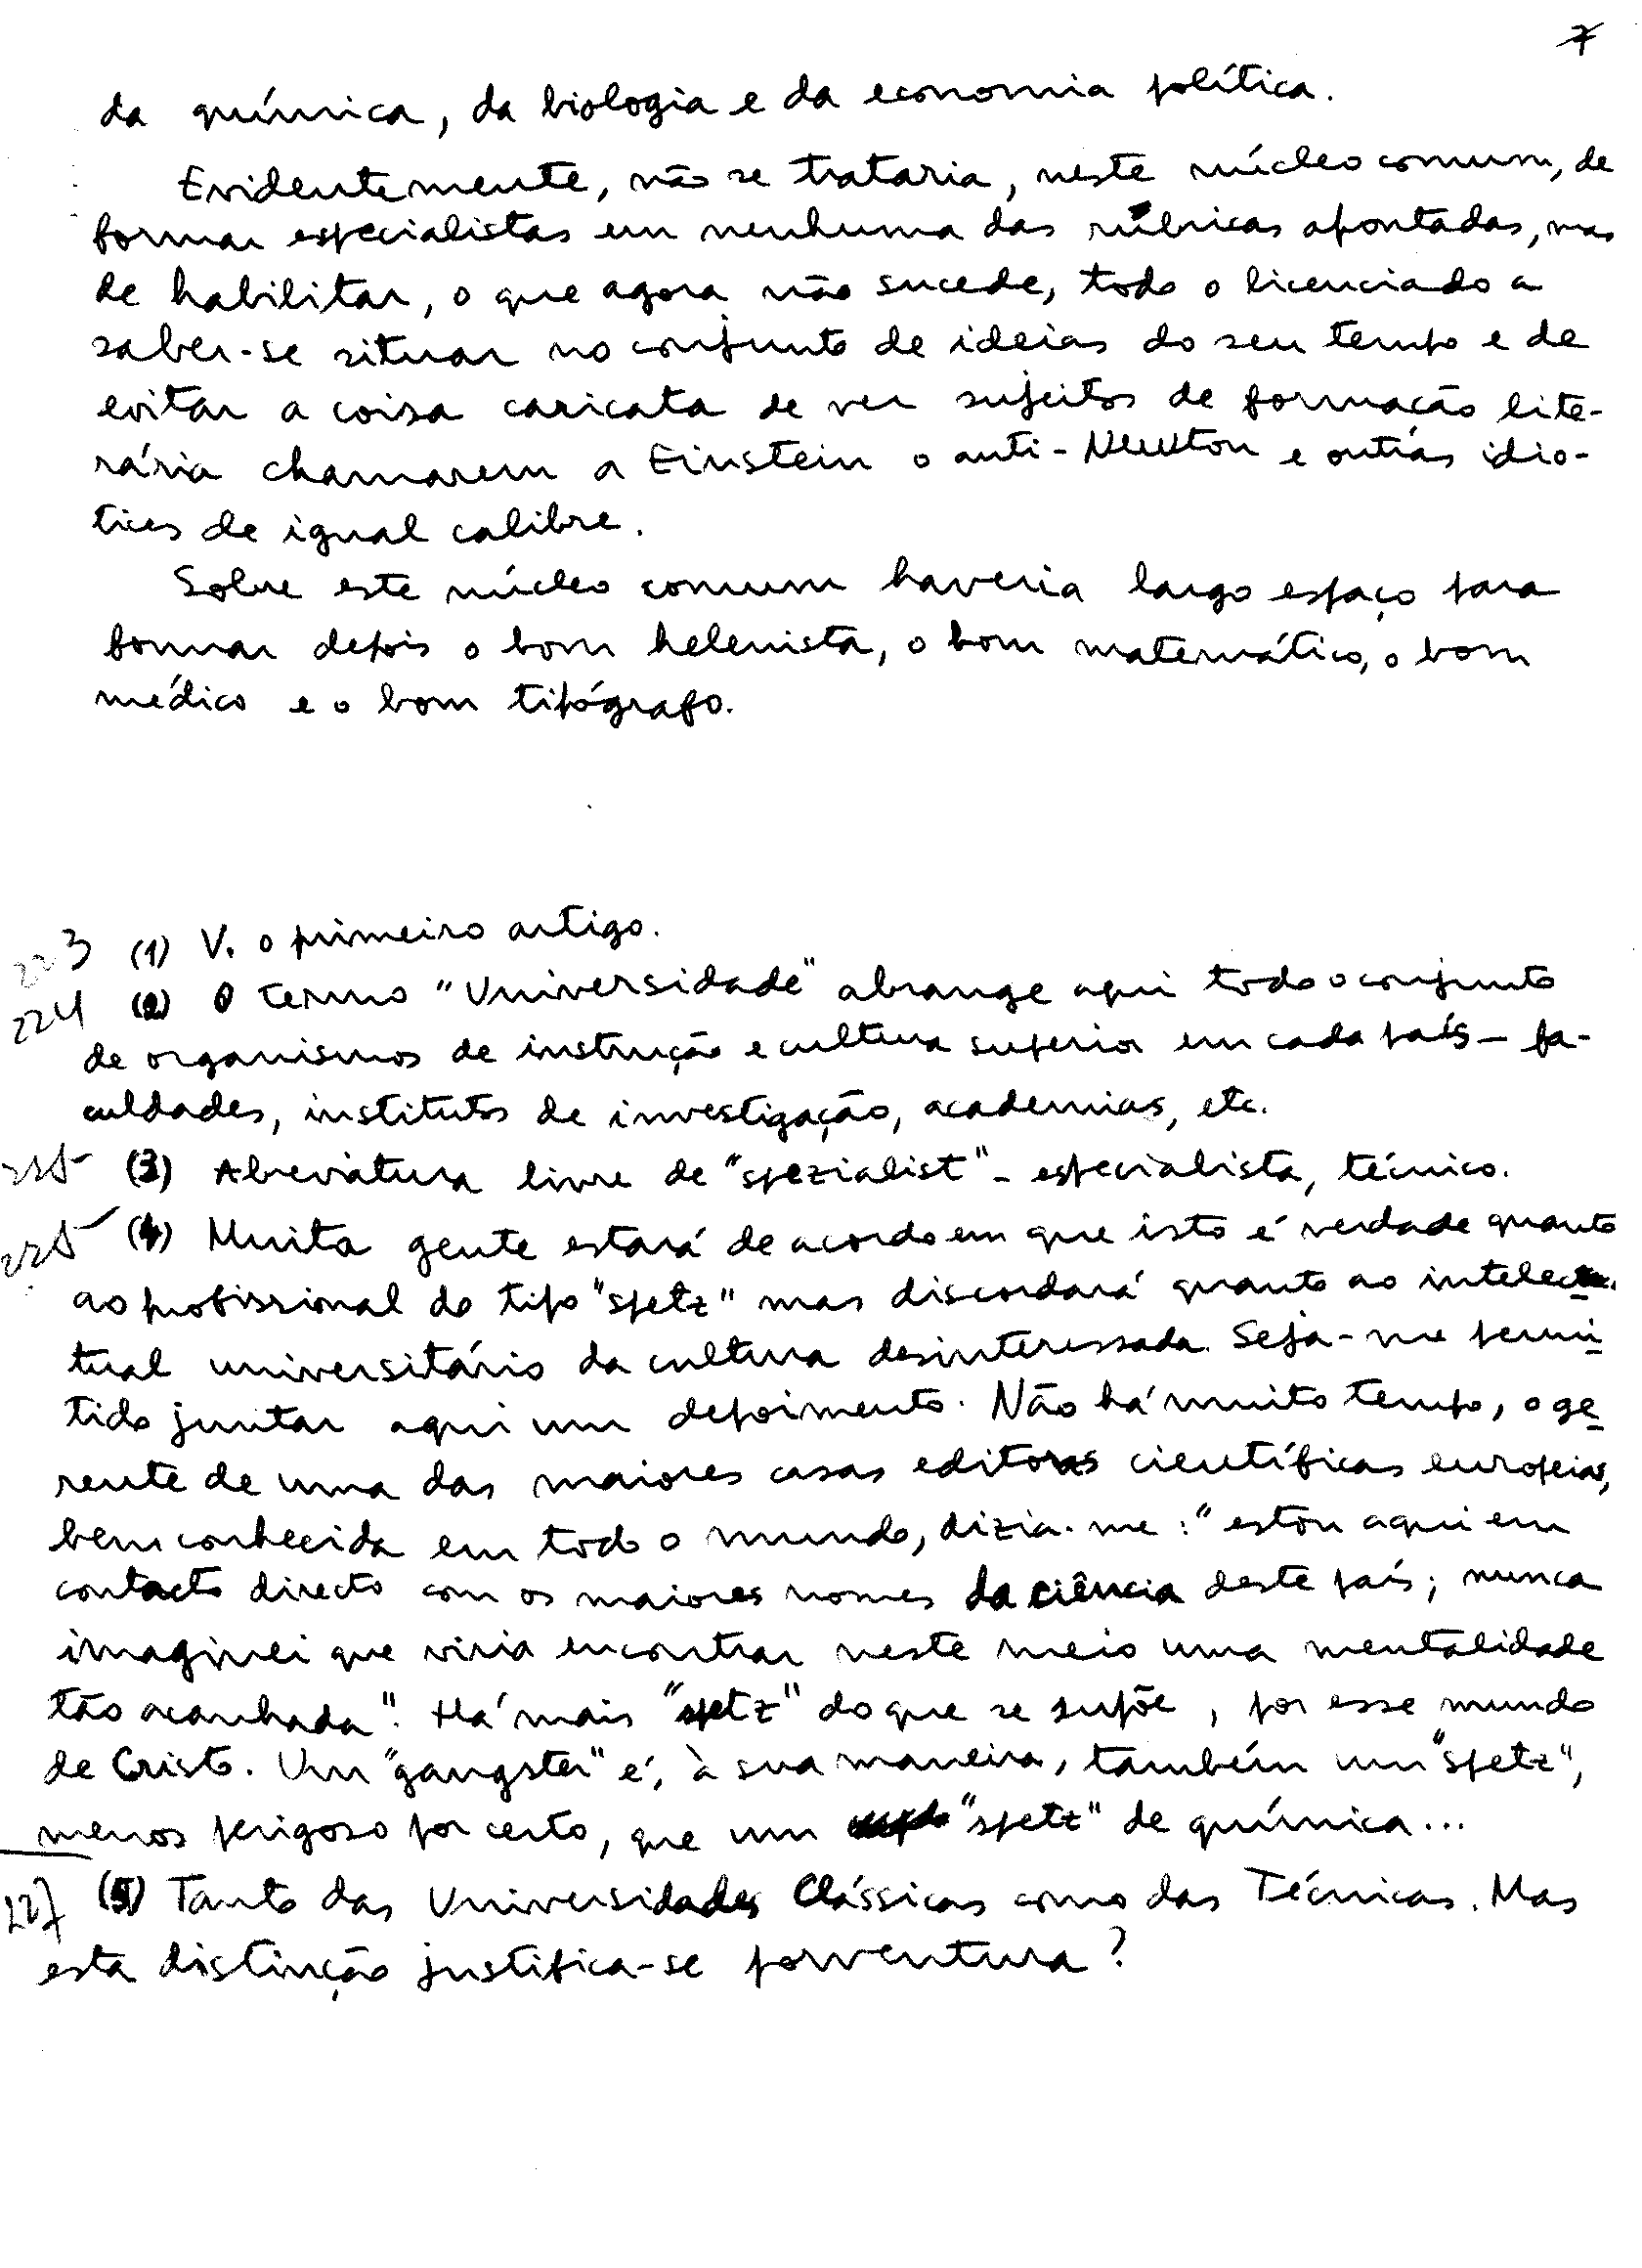 7
da química, da biologia e da economia política.
Evidentemente, não se trataria, neste núcleo comum, de
formar especialistas em nenhuma das rúbricas apontadas, mas
de habilitar, o que agora não sucede, todo o licenciado a
saber-se situar no conjunto de ideias do seu tempo e de
evitar a coisa caricata de ver sujeitos de formação lite-
rária chamarem a Einstein o anti-Newton e outras idio-
tices de igual calibre.
Sobre este núcleo comum haveria largo espaço para
formar depois o bom helenista, o bom matemático, o bom
médico e o bom tipógrafo.
223 (1) V. o primeiro artigo.
224 (2) O termo "Universidade" abrange aqui todo o conjunto
de organismos de instrução e cultura superior em cada país – fa-
culdades, institutos de investigação, academias, etc.
225 (3) Abreviatura livre de "spezialist" – especialista, técnico.
225 (4) Muita gente estará de acordo em que isto é verdade quanto
ao profissional do tipo "spetz" mas discordará quanto ao intelec-
tual universitário da cultura desinteressada. Seja-me permi-
tido juntar aqui um depoimento. Não há muito tempo, o ge-
rente de uma das maiores casas editoras científicas europeias,
bem conhecida em todo o mundo, dizia-me: "estou aqui em
contacto directo com os maiores nomes da ciência deste país; nunca
imaginei que viria encontrar neste meio uma mentalidade
tão acanhada". Há mais "spetz" do que se supõe, por esse mundo
de Cristo. Um "gangster" é, à sua maneira, também um "spetz",
menos perigoso por certo, que um "spetz" de química...
227 (5) Tanto das Universidades Clássicas como das Técnicas. Mas
esta distinção justifica-se porventura?